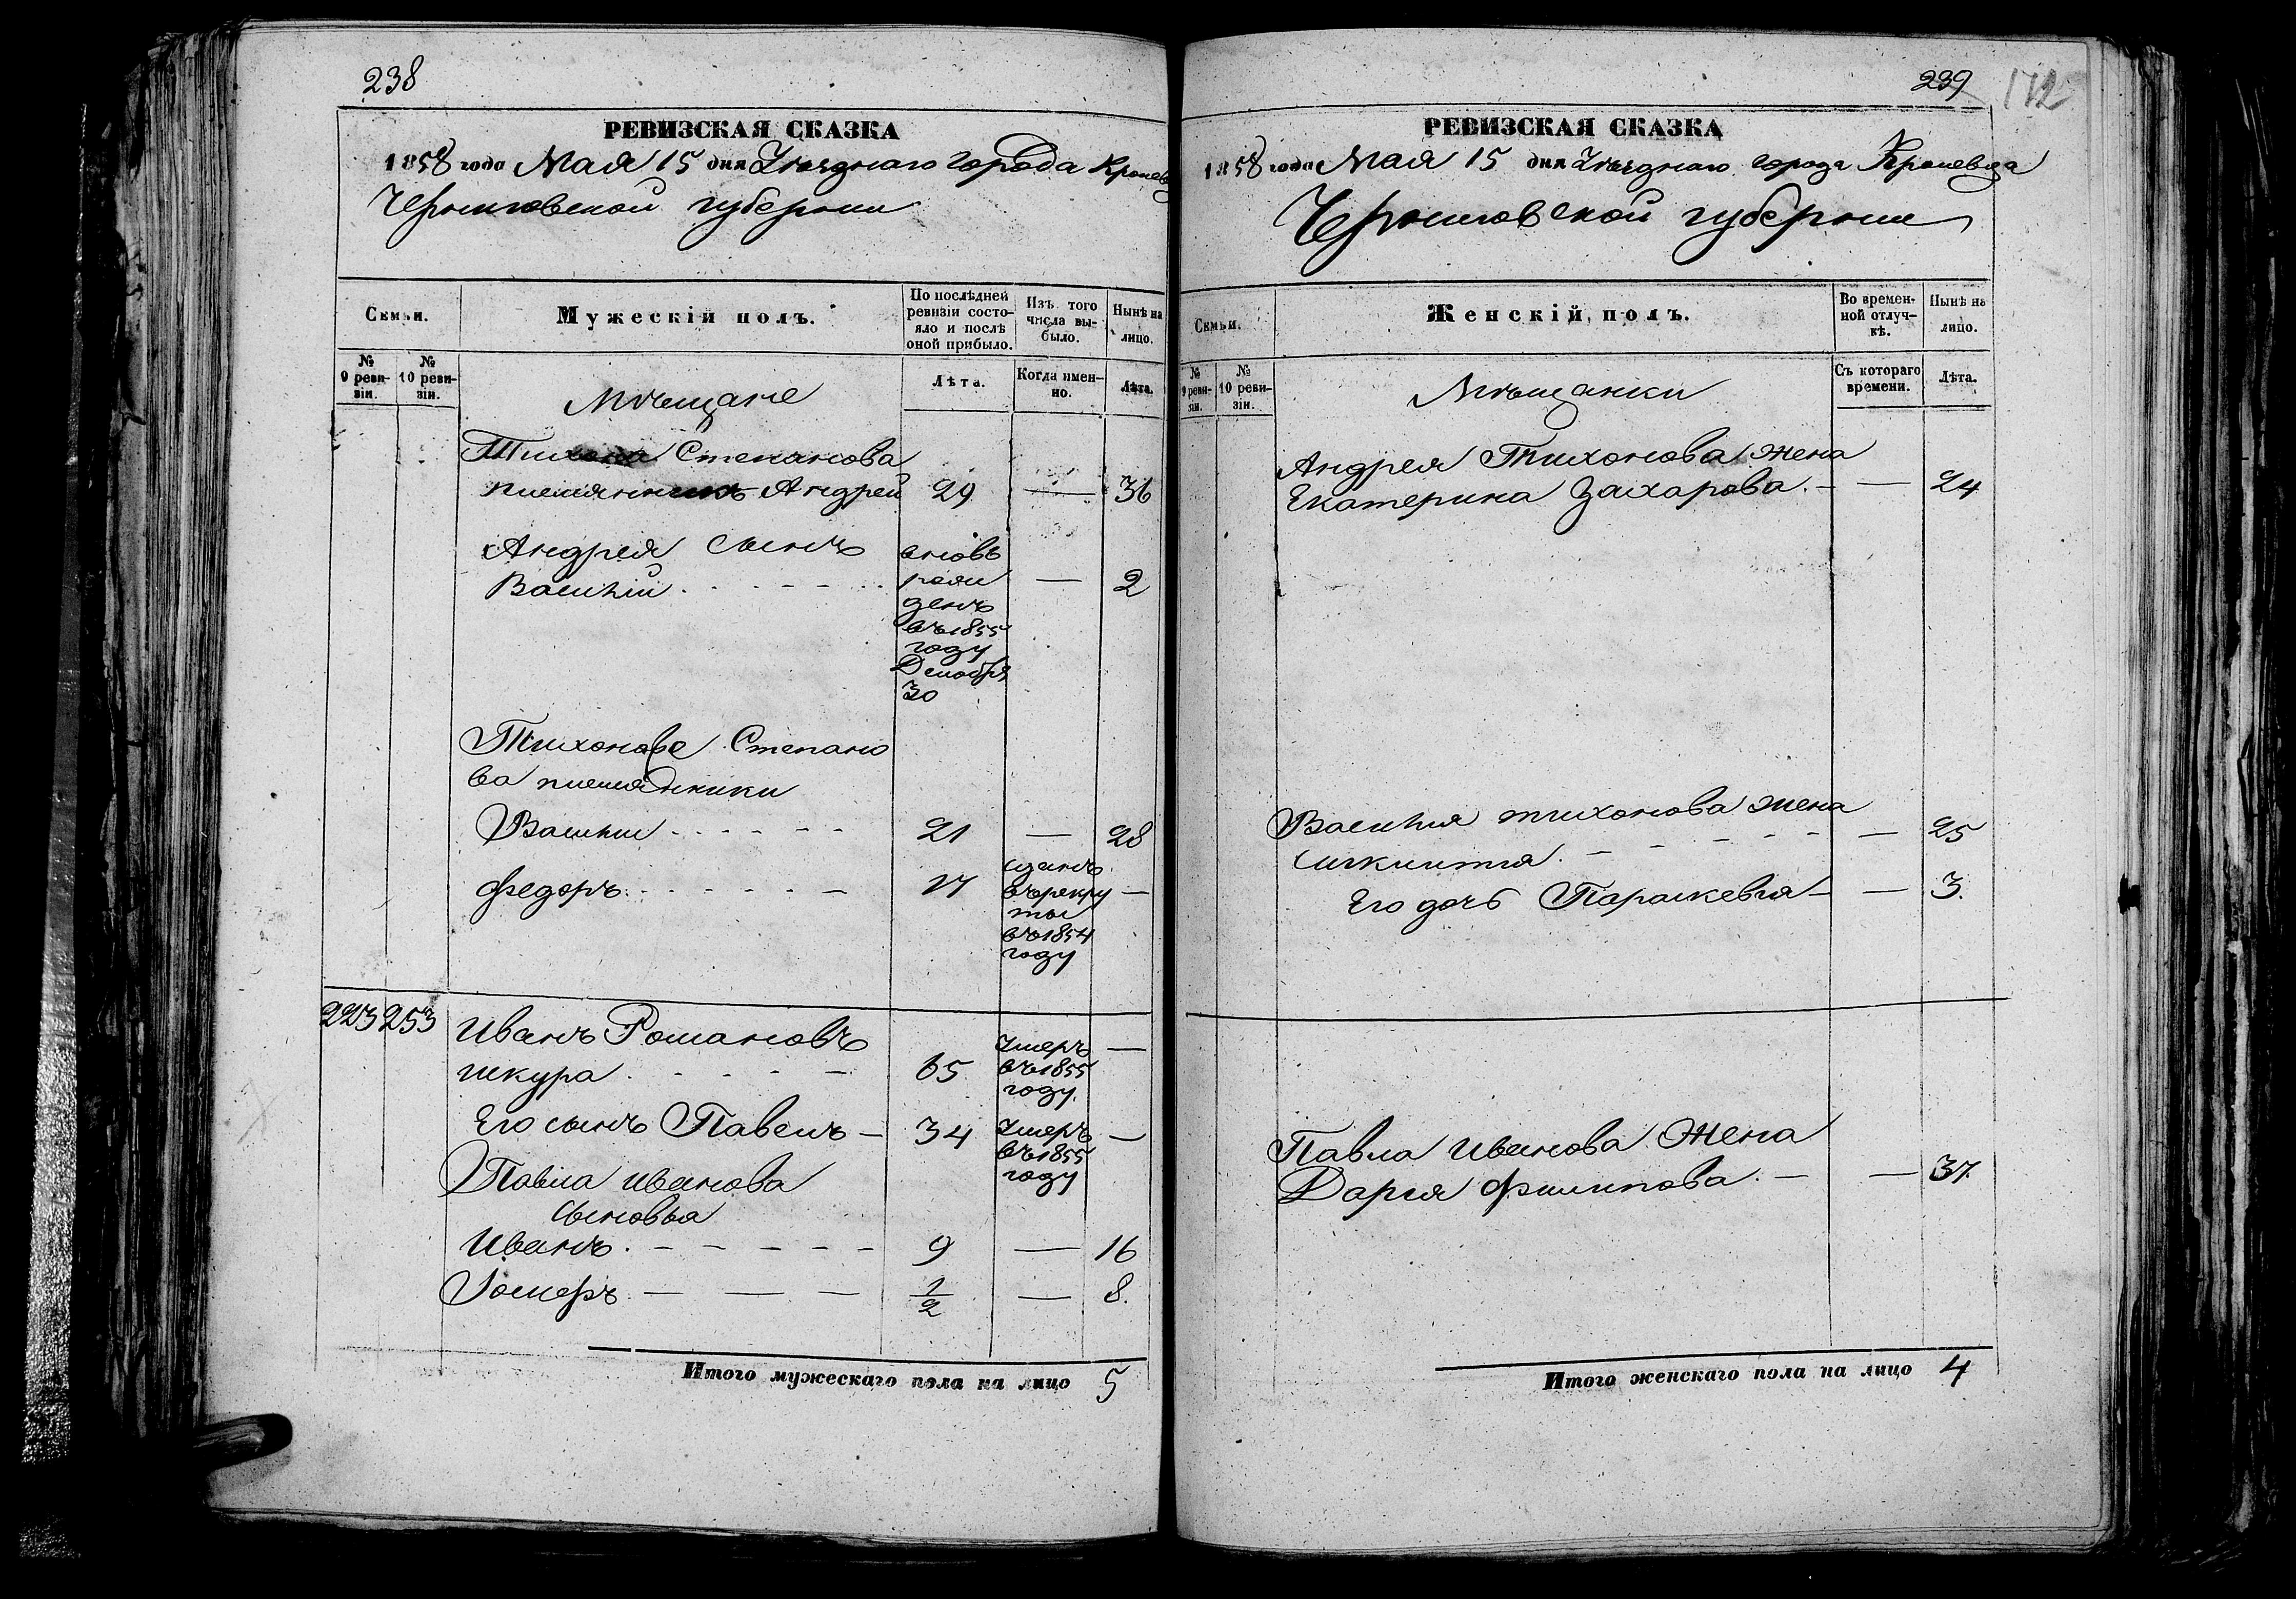 238
РЕВИЗСКАЯ СКАЗКА
1858 года Мая 15 дня Уѣзднаго города Кролев
Черниговской губернии
Семьи.
Мужескій полъ.
По послѣдней ревизіи состояло и послѣ оной прибыло.
Изъ того числа выбыло.
Нынѣ на лицо.
№ 9 ревизіи.
№ 10 ревизіи.
Мѣщане
Лѣта.
Когда именно.
Лѣта.
Тихона Степанова
племянникъ Андрей 29 — 36
Андрея сынъ
Василій . - - - - 2
вновь
рож
денъ
въ 1855
году
Декабря
30
Тихонове Степано
ва племянники
Василии - - - - - 21 — 28
Федоръ. - - - - - 17 —
сданъ
въ рекру
ты
въ 1854
году
223 253 Иванъ Романовъ
шкура . - - - - 65 —
Умеръ
въ 1855
году.
Его сынъ Павелъ — 34 —
Умеръ
въ 1855
году
Павла Иванова
сыновья
Иванъ. - - - - - 9 — 16
— — — 1/2 — 8.
Итого мужескаго пола на лицо 5
239
172
РЕВИЗСКАЯ СКАЗКА
1858 года Мая 15 дня Уѣзднаго города Кролевца
Черниговской губернии
Семьи.
Женскій полъ.
Во временной отлучкѣ.
Нынѣ на лицо.
№ 9 ревизіи.
№ 10 ревизіи.
Мѣщанки
Съ котораго времени.
Лѣта.
Андрея Тихонова жена
Екатерина Захарова. - — 24
Василия тихонова жена
- - - - — 25
Его дочь Параскевия — — 3.
Павла Иванова Жена
Дария Филипова. — — 37.
Итого женскаго пола на лицо 4